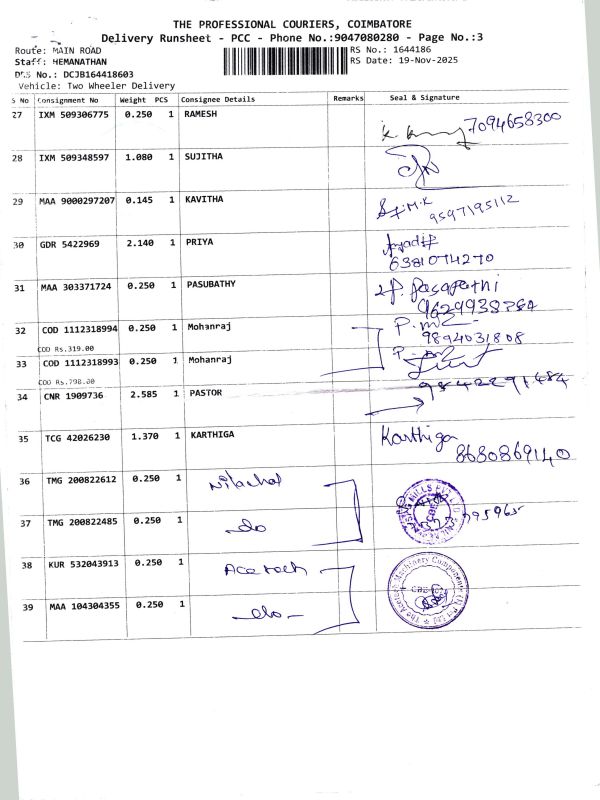 THE PROFESSIONAL COURIERS, COIMBATORE
Delivery Runsheet - PCC - Phone No.:9047080280 - Page No.:3
Route: MAIN ROAD
RS No.: 1644186
Staff: HEMANATHAN
RS Date: 19-Nov-2025
DRS No.: DCJB164418603
Vehicle: Two Wheeler Delivery
S No Consignment No Weight PCS Consignee Details Remarks Seal & Signature
27 IXM 509306775 0.250 1 RAMESH 7094658300
28 IXM 509348597 1.080 1 SUJITHA
29 MAA 9000297207 0.145 1 KAVITHA M.K
9597195112
30 GDR 5422969 2.140 1 PRIYA
6381074270
31 MAA 303371724 0.250 1 PASUBATHY
32 COD 1112318994 0.250 1 Mohanraj
9894031808
COD Rs.319.00
33 COD 1112318993 0.250 1 Mohanraj
COD Rs.798.00
34 CNR 1909736 2.585 1 PASTOR
35 TCG 42026230 1.370 1 KARTHIGA Karthiga
8680869140
36 TMG 200822612 0.250 1
37 TMG 200822485 0.250 1 do
38 KUR 532043913 0.250 1
39 MAA 104304355 0.250 1 do